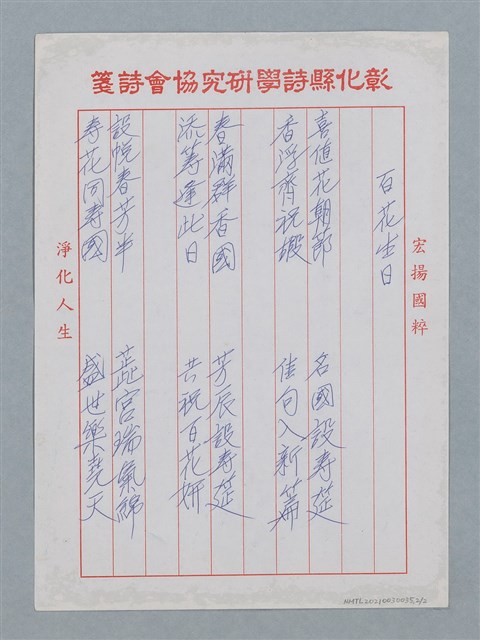 彰化縣詩學硏究協會詩箋
宏揚國粹
百花生日
喜值花朝節　名園設壽筵
香浮齊祝嘏　佳句入新篇
春滿群香國　芳辰設壽筵
添籌逢此日　共祝百花妍
設帨春芳半　蕋宮瑞氣綿
壽花同壽國　盛世樂堯天
淨化人生
NMTL20210030095,2/2